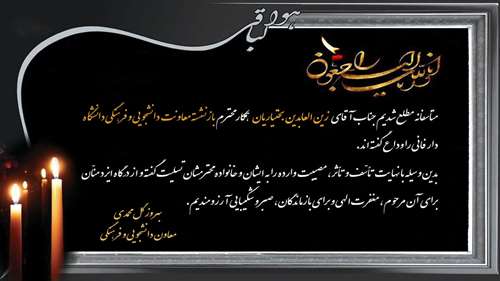 هو الباقی
انا لله و انا الیه راجعون
متاسفانه مطلع شدیم جناب آقای زین العابدین بختیاریان همکار محترم بازنشسته معاونت دانشجویی و فرهنگی دانشگاه
دار فانی را وداع گفته اند.
بدین وسیله با نهایت تاسف و تاثر، مصیبت وارده را به ایشان و خانواده محترمشان تسلیت گفته و از درگاه ایزد منان
برای آن مرحوم، مغفرت الهی و برای بازماندگان، صبر و شکیبایی آرزومندیم.
بهروز گل محمدی
معاون دانشجویی و فرهنگی